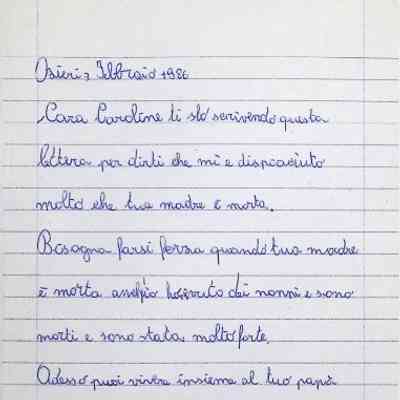 3 Febbraio 1986
Cara Caroline ti sto scrivendo questa
lettera per dirti che mi e dispiaciuto
molto che tua madre è morta.
Bisogna farsi forza quando tua madre
è morta anch'io dei nonni e sono
morti e sono stata molto forte.
Adesso puoi vivere insieme al tuo papà